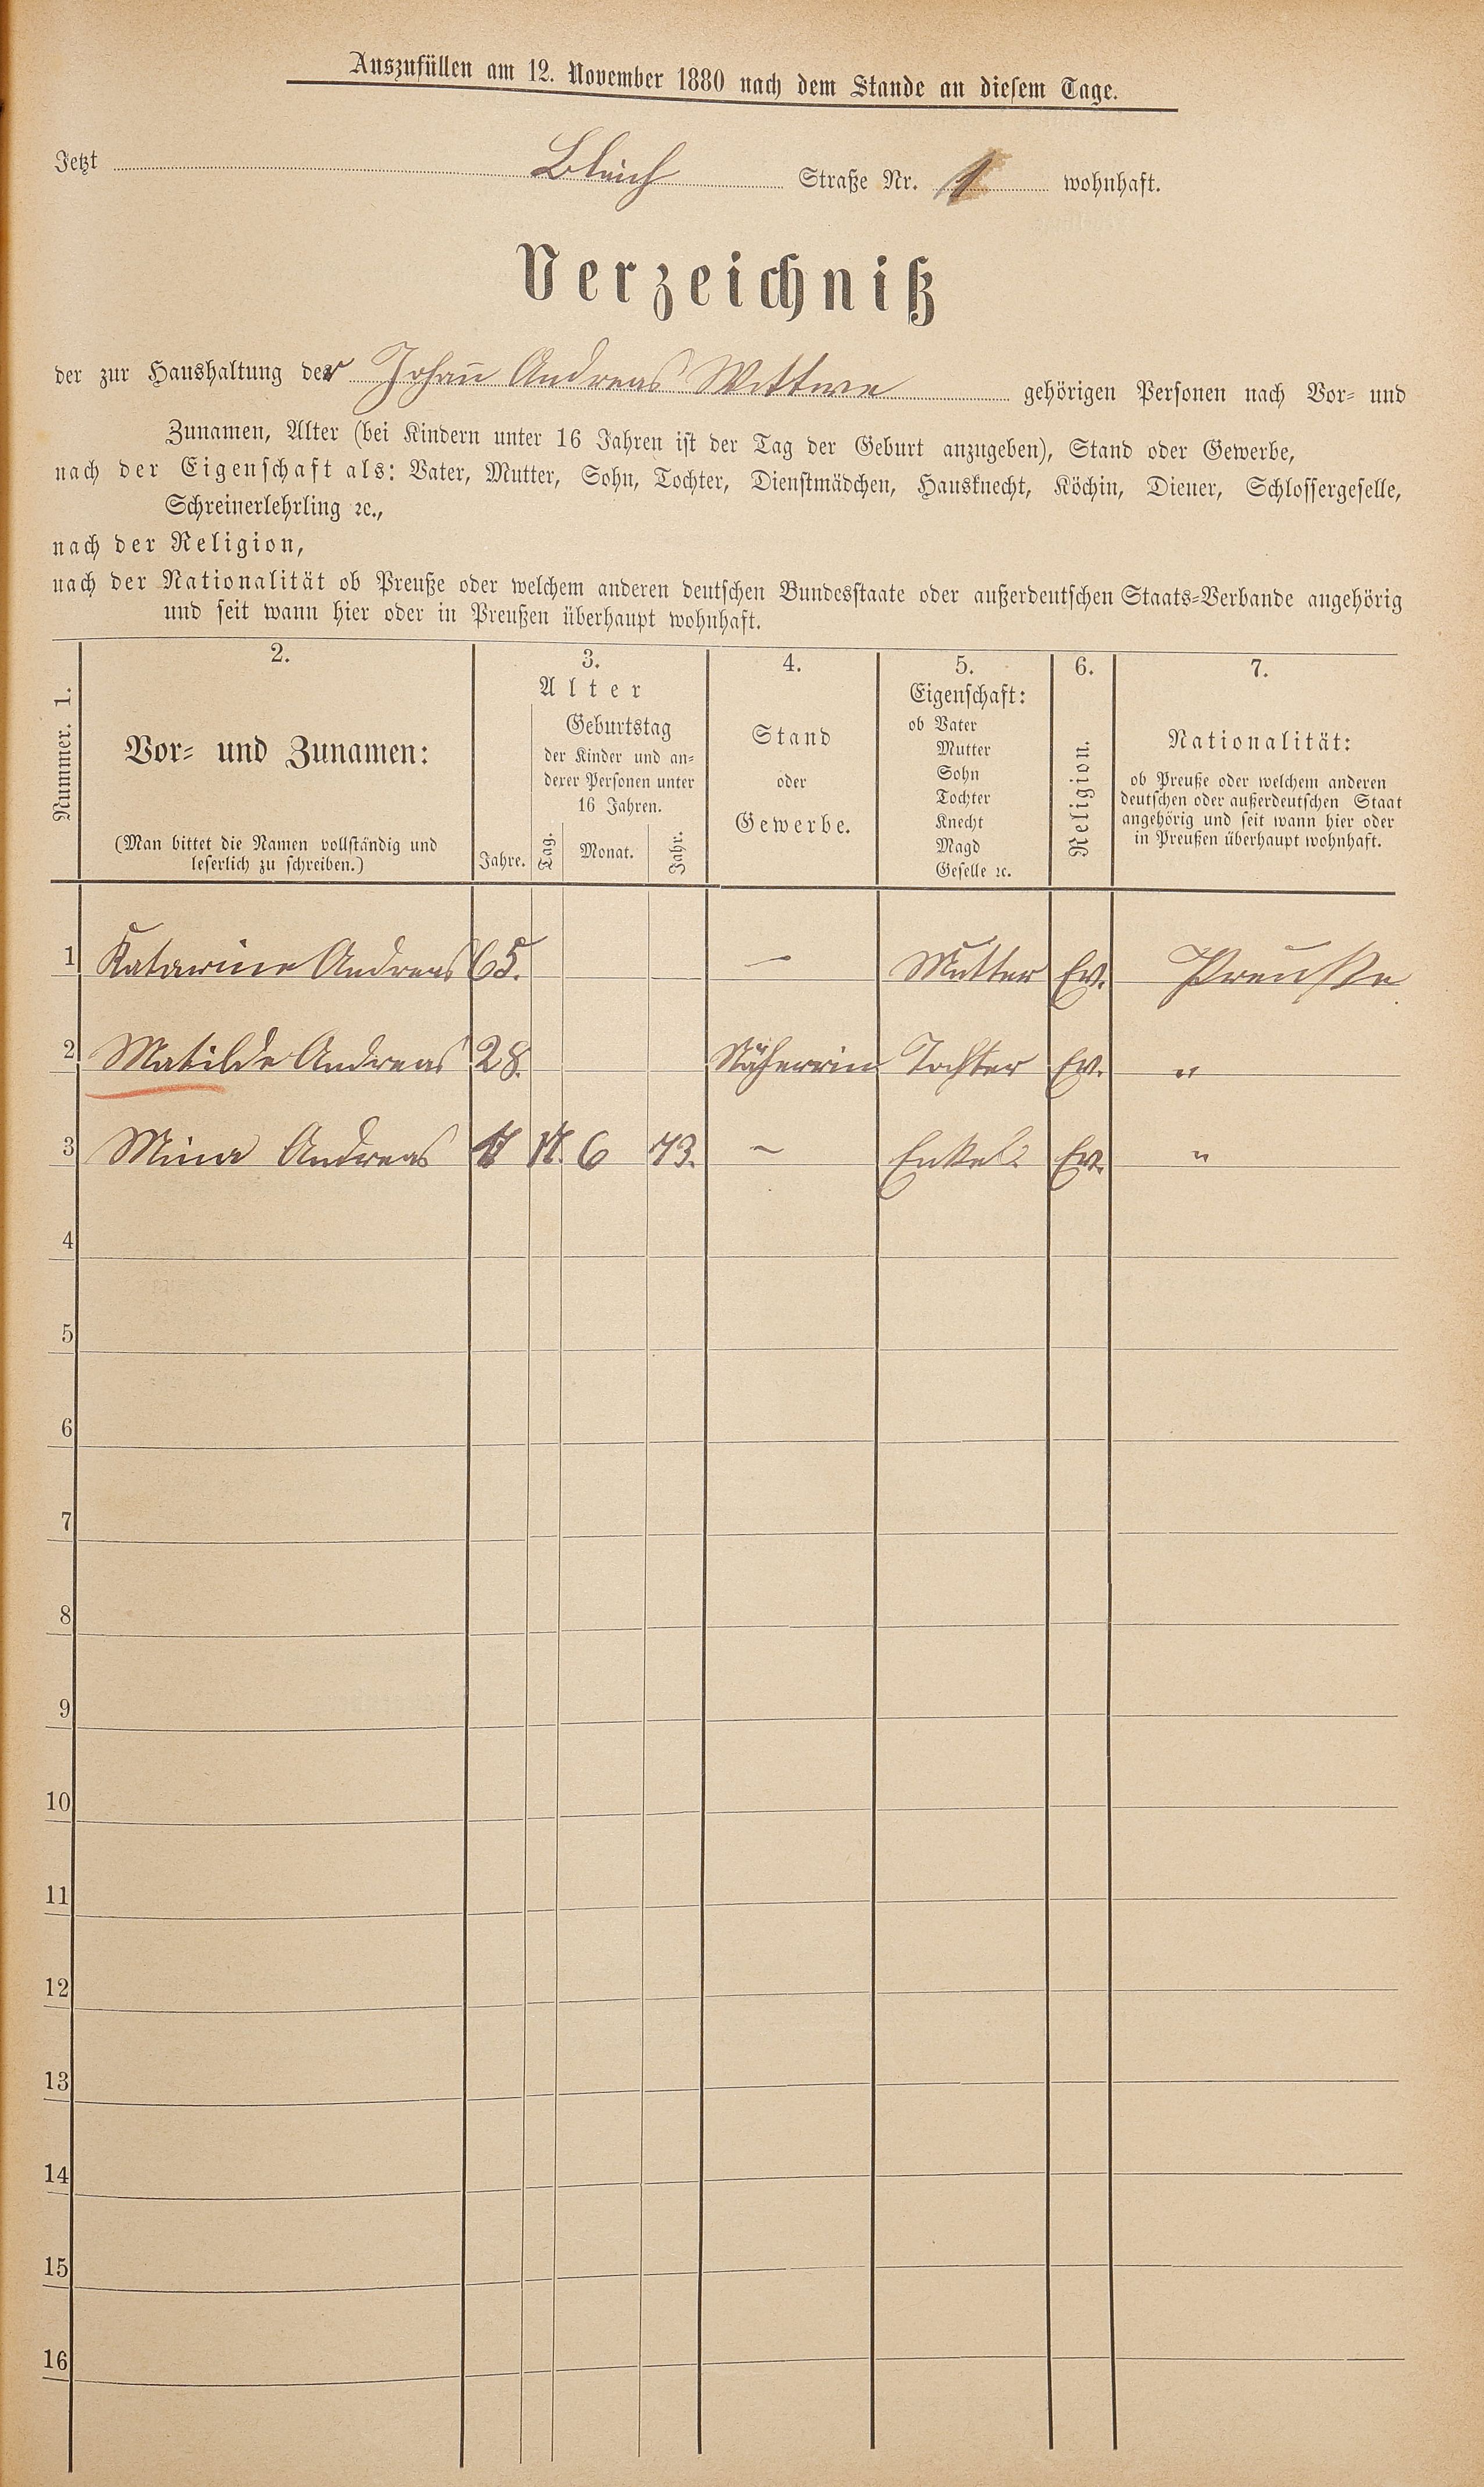 Auszufüllen am 12. November 1880 nach dem Stande an diesem Tage.
Jetzt Bleich Straße Nr. 1 wohnhaft.
Verzeichniß
der zur Haushaltung der Johañ Andreas Wittwe gehörigen Personen nach Vor- und
Zunamen, Alter (bei Kindern unter 16 Jahren ist der Tag der Geburt anzugeben), Stand oder Gewerbe,
nach der Eigenschaft als: Vater, Mutter, Sohn, Tochter, Dienstmädchen, Hausknecht, Köchin, Diener, Schlossergeselle,
Schreinerlehrling ꝛc.,
nach der Religion,
nach der Nationalität ob Preuße oder welchem anderen deutschen Bundesstaate oder außerdeutschen Staats-Verbande angehörig
und seit wann hier oder in Preußen überhaupt wohnhaft.
Nummer. 1.
2.
Vor- und Zunamen:
(Man bittet die Namen vollständig und
leserlich zu schreiben.)
3.
Alter
Jahre.
Geburtstag
der Kinder und an-
derer Personen unter
16 Jahren.
Tag. Monat. Jahr.
4.
Stand
oder
Gewerbe.
5.
Eigenschaft:
ob Vater
Mutter
Sohn
Tochter
Knecht
Magd
Geselle ꝛc.
6.
Religion.
7.
Nationalität:
ob Preuße oder welchem anderen
deutschen oder außerdeutschen Staat
angehörig und seit wann hier oder
in Preußen überhaupt wohnhaft.
1 Katarine Andreas 65. — Mutter Ev. Preuße
2 Matilde Andreas 28. Näherrin Tochter Ev. "
3 Mina Andreas 17. 6 73. — Enkel. Ev. "
4
5
6
7
8
9
10
11
12
13
14
15
16